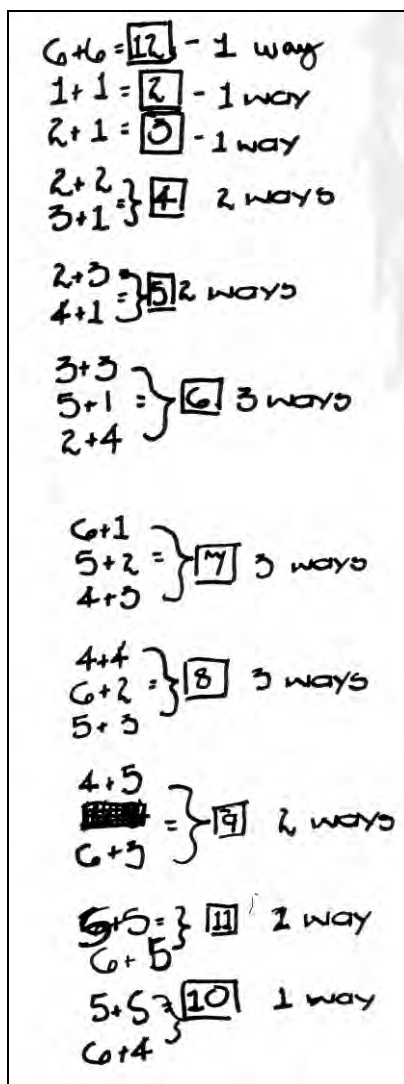 6+6 = 12 - 1 way
1+1 = 2 - 1 way
2+1 = 3 - 1 way
2+2
3+1 = } 4 2 ways
2+3
4+1 = } 5 2 ways
3+3
5+1 = } 6 3 ways
2+4
6+1
5+2 = } 7 3 ways
4+3
4+4
6+2 = } 8 3 ways
5+3
4+5
= } 9 2 ways
6+3
5+5 = } 11 1 way
6+5
5+5 = } 10 1 way
6+4